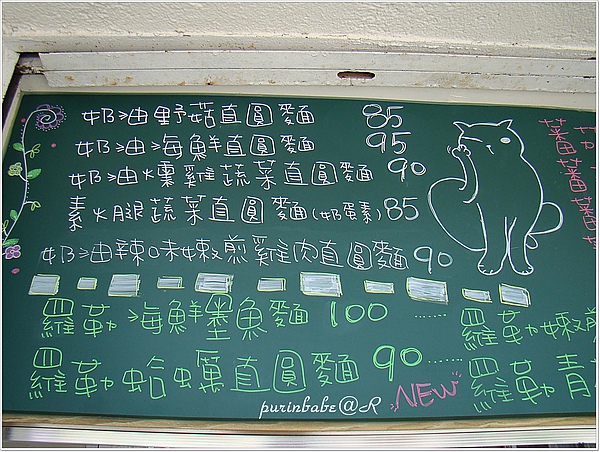 奶油野菇直圓麵 85
奶油海鮮直圓麵 95
奶油燻雞蔬菜直圓麵 90
素火腿蔬菜直圓麵(奶蛋素) 85
奶油辣味嫩煎雞肉直圓麵 90
羅勒海鮮墨魚麵 100 ......
羅勒嫩煎
羅勒蛤蜊直圓麵 90 ......
羅勒青
NEW
蕃茄
蕃
蕃
purinbabe@R